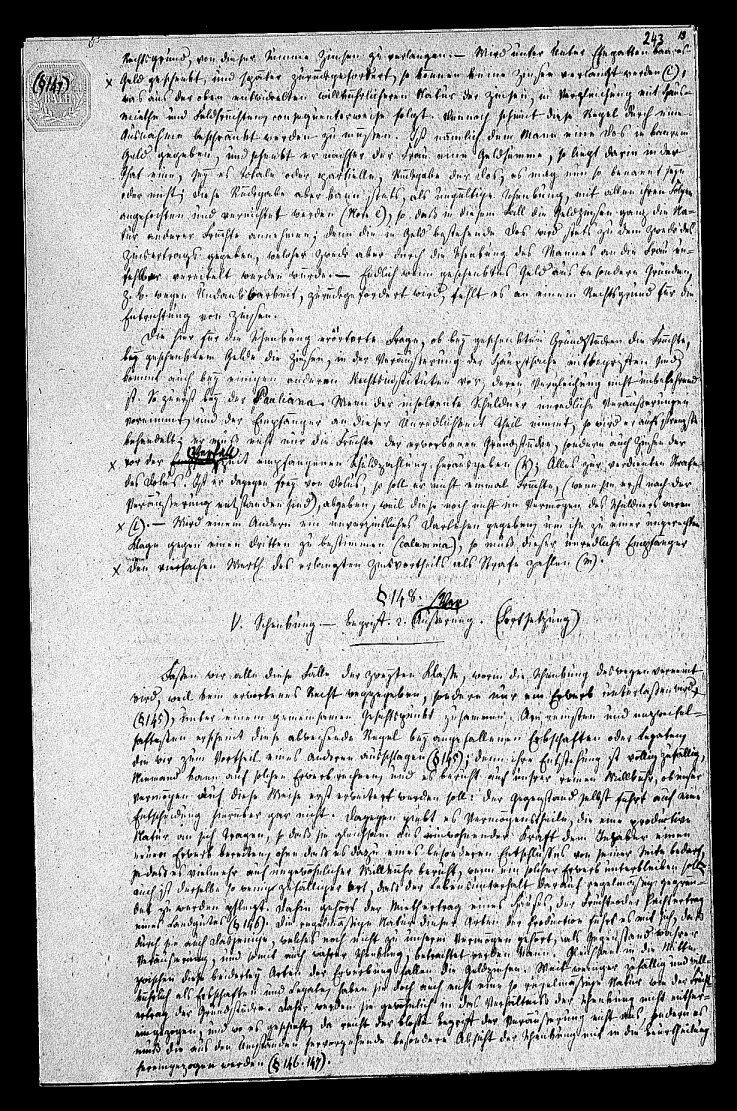 243 19
(§147)
Rechtsgrund, von dieser Summe Zinsen zu verlangen. — Wird unter Ehegatten baares
Geld geschenkt, und später zurückgefordert, so können keine Zinsen verlangt werden
was aus der oben entwickelten willkührlicheren Natur der Zinsen, in Vergleichung mit Haus-
miethe und Feldfrüchten consequenterweise folgt. Dennoch scheint diese Regel durch eine
Ausnahme beschränkt werden zu müssen. Ist nämlich dem Mann eine Dos in baarem
Geld gegeben, und schenkt er nachher der Frau eine Geldsumme, so liegt darin in der
That eine, sey es totale oder partielle, Rückgabe der Dos, es mag nun so benannt seyn
oder nicht; diese Rückgabe aber kann stets, als ungültige Schenkung, mit allen ihren Folgen
angefochten und vernichtet werden (Note e), so daß in diesem Fall die Geldzinsen ganz die Na-
tur anderer Früchte annehmen; denn die in Geld bestehende Dos wird stets zu dem Zweck des
Zinsertrags gegeben, welcher Zweck aber durch die Schenkung des Mannes an die Frau un-
fehlbar vereitelt werden würde. — Endlich wenn geschenktes Geld aus besonderen Gründen,
z. B. wegen Undankbarkeit, zurückgefordert wird, fehlt es an einem Rechtsgrund für die
Entrichtung von Zinsen.
Die hier für die Schenkung erörterte Frage, ob bey geschenkten Grundstücken die Früchte,
bey geschenktem Gelde die Zinsen, in der Veräußerung der Hauptsache mitbegriffen sind
kommt auch bey einigen anderen Rechtsinstituten vor, deren Vergleichung nicht unbelehrend
ist. So zuerst bey der Pauliana. Wenn der insolvente Schuldner unredliche Veräußerungen
vornimmt, und der Empfänger an dieser Unredlichkeit Theil nimmt, so wird er aufs strengste
behandelt; er muß nicht nur die Früchte der erworbenen Grundstücke, sondern auch Zinsen der
vor der Verfallzeit empfangenen Schuldzahlung herausgeben (k); Alles zur verdienten Strafe
des Dolus. Ist er dagegen frey von Dolus, so soll er nicht einmal Früchte, (wenn sie erst nach der
Veräußerung entstanden sind), abgeben, weil diese noch nicht im Vermögen des Schuldners waren
(l). — Wird einem Andern ein unverzinsliches Darlehen gegeben, um ihn zu einer ungerechten
Klage gegen einen Dritten zu bestimmen (calumnia), so muß dieser unredliche Empfänger
den vierfachen Werth des erlangten Zinsvortheils als Strafe zahlen (m).
§ 148.
V. Schenkung. — Begriff. 2. Äußerung. (Fortsetzung)
Fassen wir alle diese Fälle der zweyten Klasse, worin die Schenkung deswegen verneint
wird, weil kein erworbenes Recht weggegeben, sondern nur ein Erwerb unterlassen wird
(§ 145), unter einem gemeinsamen Gesichtspunkt zusammen. Am reinsten und unzweifel-
haftesten erscheint diese abweichende Regel bey angefallenen Erbschaften oder Legaten
die wir zum Vortheil eines Anderen ausschlagen (§ 145); denn ihre Entstehung ist völlig zufällig,
Niemand kann auf solchen Erwerb rechnen, und es beruht auf unsrer reinen Willkühr, ob unser
Vermögen auf diese Weise erst erweitert werden soll: der Gegenstand selbst führt auf eine
Entscheidung hierüber gar nicht. Dagegen giebt es Vermögenstheile, die eine productive
Natur an sich tragen, so daß sie gleichsam aus inwohnender Kraft dem Inhaber einen
neuen Erwerb bereiten, ohne daß es dazu eines besonderen Entschlusses von seiner Seite bedarf,
so daß es vielmehr auf ungewöhnlicher Willkühr beruht, wenn ein solcher Erwerb unterbleiben soll;
auch ist derselbe so wenig zufälliger Art, daß der Lebensunterhalt darauf regelmäßig gegrün-
det zu werden pflegt. Dahin gehört der Miethertrag eines Hauses, der Frucht- oder Pachtertrag
eines Landgutes (§ 146). Die regelmäßige Natur dieser Arten der Production führt es mit sich, daß
durch sie auch Dasjenige, welches noch nicht zu unserm Vermögen gehört, als Gegenstand wahrer
Veräußerung, und somit auch wahrer Schenkung, betrachtet werden kann. Gleichsam in die Mitte
zwischen diese beiderley Arten der Erwerbung fallen die Geldzinsen. Weit weniger zufällig und will-
kührlich als Erbschaften und Legate, haben sie doch auch nicht eine so regelmäßige Natur wie der Frucht-
ertrag der Grundstücke. Daher werden sie gewöhnlich in das Verhältniß der Schenkung nicht mither-
eingezogen, und wo es geschieht, da reicht der bloße Begriff der Veräußerung nicht aus, sondern es
muß die aus den Umständen hervorgehende besondere Absicht der Schenkung mit in die Beurtheilung
hereingezogen werden (§ 146. 147).